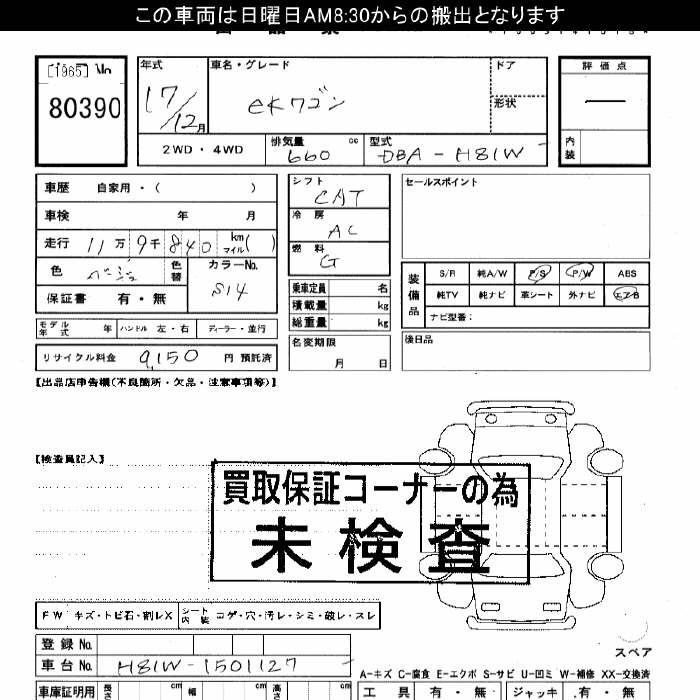 この車両は日曜日AM8:30からの搬出となります
[1965] No
80390
年式
17/12月
車名・グレード
eKワゴン
ドア
形状
評価点
内装
2WD・4WD
排気量
660
cc
型式
DBA-H81W
車歴 自家用・( )
車検 年 月
走行 11万 9千 840 km マイル( )
色 ベージュ
色替
カラーNo.
S14
保証書 有・無
シフト
CAT
冷房
AC
燃料
G
乗車定員 名
積載量 kg
総重量 kg
セールスポイント
装備品
S/R 純A/W P/S P/W ABS
純TV 純ナビ 革シート 外ナビ エアB
ナビ型番:
モデル年式 年 ハンドル 左・右 ディーラー・並行
名変期限
月 日
後日品
リサイクル料金 9,150 円 預託済
【出品店申告欄(不良箇所・欠品・注意事項等)】
【検査員記入】
買取保証コーナーの為
未検査
FW キズ・トビ石・割レX
シート内装 コゲ・穴・汚レ・シミ・破レ・スレ
登録No.
車台No. H81W-1501127
スペア
A-キズ C-腐食 E-エクボ S-サビ U-凹ミ W-補修 XX-交換済
車庫証明用 長さ cm 幅 cm 高さ cm
工具 有・無 ジャッキ 有・無